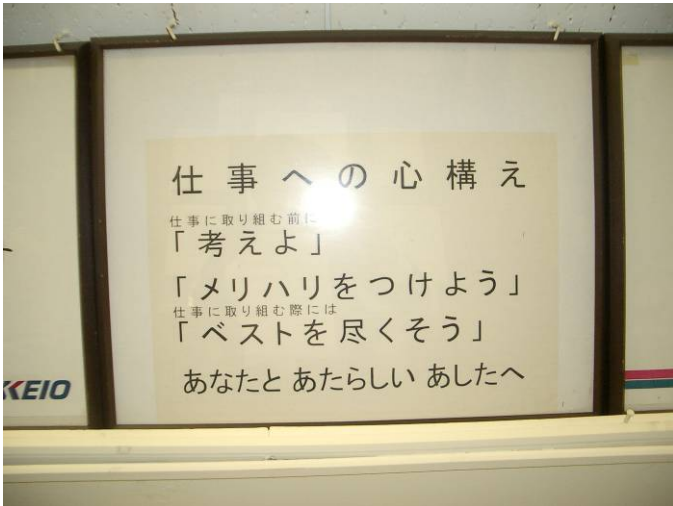 仕事への心構え
仕事に取り組む前に
「考えよ」
「メリハリをつけよう」
仕事に取り組む際には
「ベストを尽くそう」
あなたと あたらしい あしたへ
KEIO